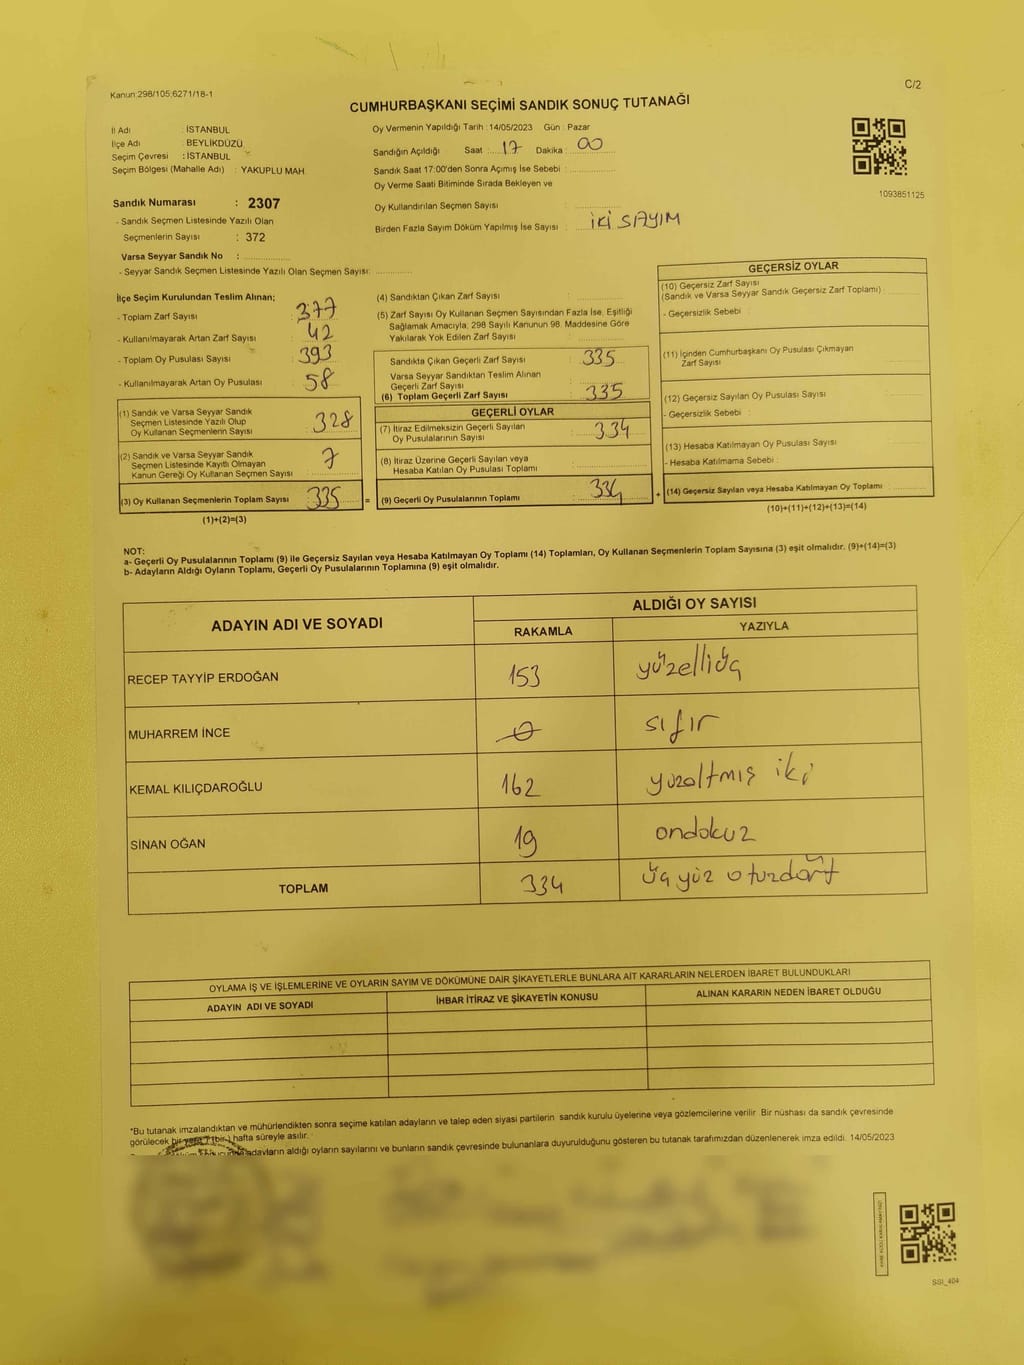 Kanun:298/105;6271/18-1
C/2
CUMHURBAŞKANI SEÇİMİ SANDIK SONUÇ TUTANAĞI
İl Adı : İSTANBUL
İlçe Adı : BEYLİKDÜZÜ
Seçim Çevresi : İSTANBUL
Seçim Bölgesi (Mahalle Adı) : YAKUPLU MAH.
Sandık Numarası : 2307
- Sandık Seçmen Listesinde Yazılı Olan
Seçmenlerin Sayısı : 372
Varsa Seyyar Sandık No :
- Seyyar Sandık Seçmen Listesinde Yazılı Olan Seçmen Sayısı:
Oy Vermenin Yapıldığı Tarih : 14/05/2023 Gün : Pazar
Sandığın Açıldığı Saat : 17 Dakika : 00
Sandık Saat 17:00'den Sonra Açımış İse Sebebi :
Oy Verme Saati Bitiminde Sırada Bekleyen ve
Oy Kullandırılan Seçmen Sayısı :
Birden Fazla Sayım Döküm Yapılmış İse Sayısı : iki SAYIM
1093851125
İlçe Seçim Kurulundan Teslim Alınan;
- Toplam Zarf Sayısı : 377
- Kullanılmayarak Artan Zarf Sayısı : 42
- Toplam Oy Pusulası Sayısı : 393
- Kullanılmayarak Artan Oy Pusulası : 58
(1) Sandık ve Varsa Seyyar Sandık
Seçmen Listesinde Yazılı Olup
Oy Kullanan Seçmenlerin Sayısı : 328
(2) Sandık ve Varsa Seyyar Sandık
Seçmen Listesinde Kayıtlı Olmayan
Kanun Gereği Oy Kullanan Seçmen Sayısı : 7
(3) Oy Kullanan Seçmenlerin Toplam Sayısı : 335 =
(1)+(2)=(3)
(4) Sandıktan Çıkan Zarf Sayısı :
(5) Zarf Sayısı Oy Kullanan Seçmen Sayısından Fazla İse, Eşitliği
Sağlamak Amacıyla, 298 Sayılı Kanunun 98. Maddesine Göre
Yakılarak Yok Edilen Zarf Sayısı :
Sandıkta Çıkan Geçerli Zarf Sayısı : 335
Varsa Seyyar Sandıktan Teslim Alınan
Geçerli Zarf Sayısı :
(6) Toplam Geçerli Zarf Sayısı : 335
GEÇERLİ OYLAR
(7) İtiraz Edilmeksizin Geçerli Sayılan
Oy Pusulalarının Sayısı : 334
(8) İtiraz Üzerine Geçerli Sayılan veya
Hesaba Katılan Oy Pusulası Toplamı :
(9) Geçerli Oy Pusulalarının Toplamı : 334 +
GEÇERSİZ OYLAR
(10) Geçersiz Zarf Sayısı
(Sandık ve Varsa Seyyar Sandık Geçersiz Zarf Toplamı) :
- Geçersizlik Sebebi :
(11) İçinden Cumhurbaşkanı Oy Pusulası Çıkmayan
Zarf Sayısı :
(12) Geçersiz Sayılan Oy Pusulası Sayısı :
- Geçersizlik Sebebi :
(13) Hesaba Katılmayan Oy Pusulası Sayısı :
- Hesaba Katılmama Sebebi :
(14) Geçersiz Sayılan veya Hesaba Katılmayan Oy Toplamı :
(10)+(11)+(12)+(13)=(14)
NOT:
a- Geçerli Oy Pusulalarının Toplamı (9) ile Geçersiz Sayılan veya Hesaba Katılmayan Oy Toplamı (14) Toplamları, Oy Kullanan Seçmenlerin Toplam Sayısına (3) eşit olmalıdır. (9)+(14)=(3)
b- Adayların Aldığı Oyların Toplamı, Geçerli Oy Pusulalarının Toplamına (9) eşit olmalıdır.
ADAYIN ADI VE SOYADI ALDIĞI OY SAYISI
RAKAMLA YAZIYLA
RECEP TAYYİP ERDOĞAN 153 yüzelliüç
MUHARREM İNCE 0 sıfır
KEMAL KILIÇDAROĞLU 162 yüzaltmış iki
SİNAN OĞAN 19 ondokuz
TOPLAM 334 üçyüz oturdört
OYLAMA İŞ VE İŞLEMLERİNE VE OYLARIN SAYIM VE DÖKÜMÜNE DAİR ŞİKAYETLERLE BUNLARA AİT KARARLARIN NELERDEN İBARET BULUNDUKLARI
ADAYIN ADI VE SOYADI İHBAR İTİRAZ VE ŞİKAYETİN KONUSU ALINAN KARARIN NEDEN İBARET OLDUĞU
*Bu tutanak imzalandıktan ve mühürlendikten sonra seçime katılan adayların ve talep eden siyasi partilerin sandık kurulu üyelerine veya gözlemcilerine verilir. Bir nüshası da sandık çevresinde
görülecek bir yere 1 (bir) hafta süreyle asılır.
adayların aldığı oyların sayılarını ve bunların sandık çevresinde bulunanlara duyurulduğunu gösteren bu tutanak tarafımızdan düzenlenerek imza edildi. 14/05/2023
SSI_404